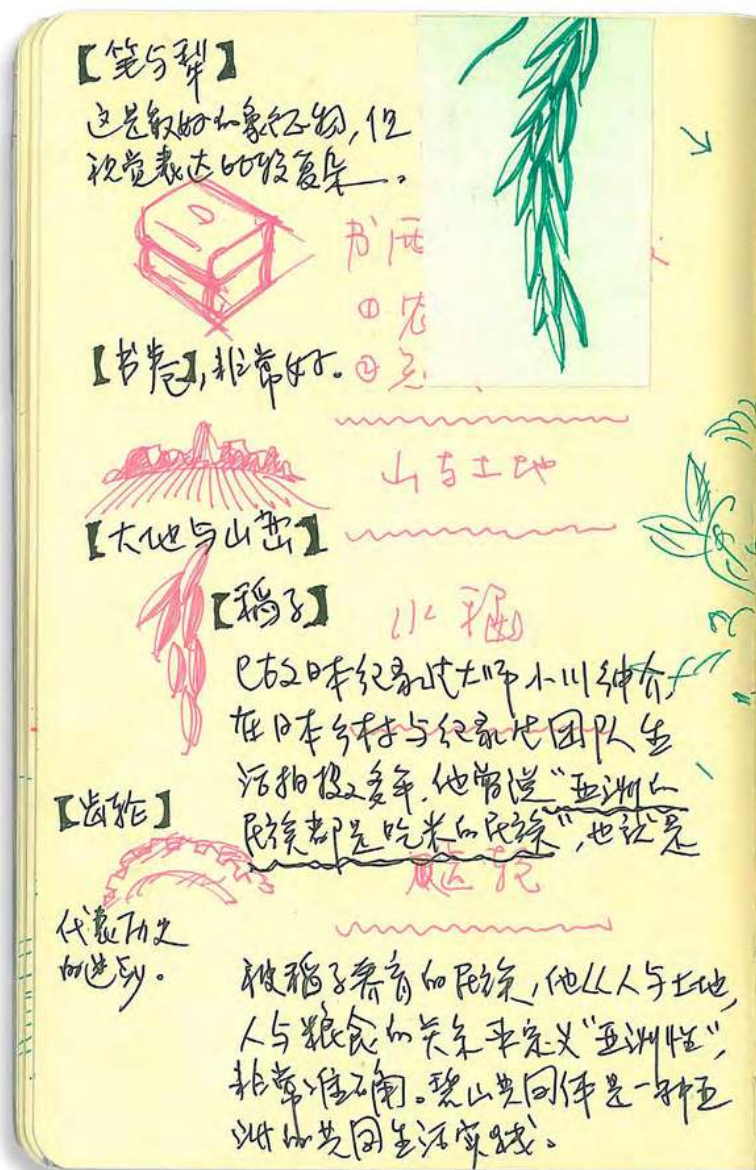 【笔与犁】
这是最好的象征物，但
视觉表达比较复杂。
书
① 农
【书卷】，非常好。②
山与土地
【大地与山峦】
【稻子】
水稻
已故日本纪录片大师小川绅介，
在日本乡村与纪录片团队生
活拍摄多年，他曾说“亚洲的
民族都是吃米的民族”，也就是
【齿轮】
齿轮
代表历史
的进步。
被稻子养育的民族，他从人与土地，
人与粮食的关系来定义“亚洲性”，
非常准确。碧山共同体是一种亚
洲的共同生活实践。